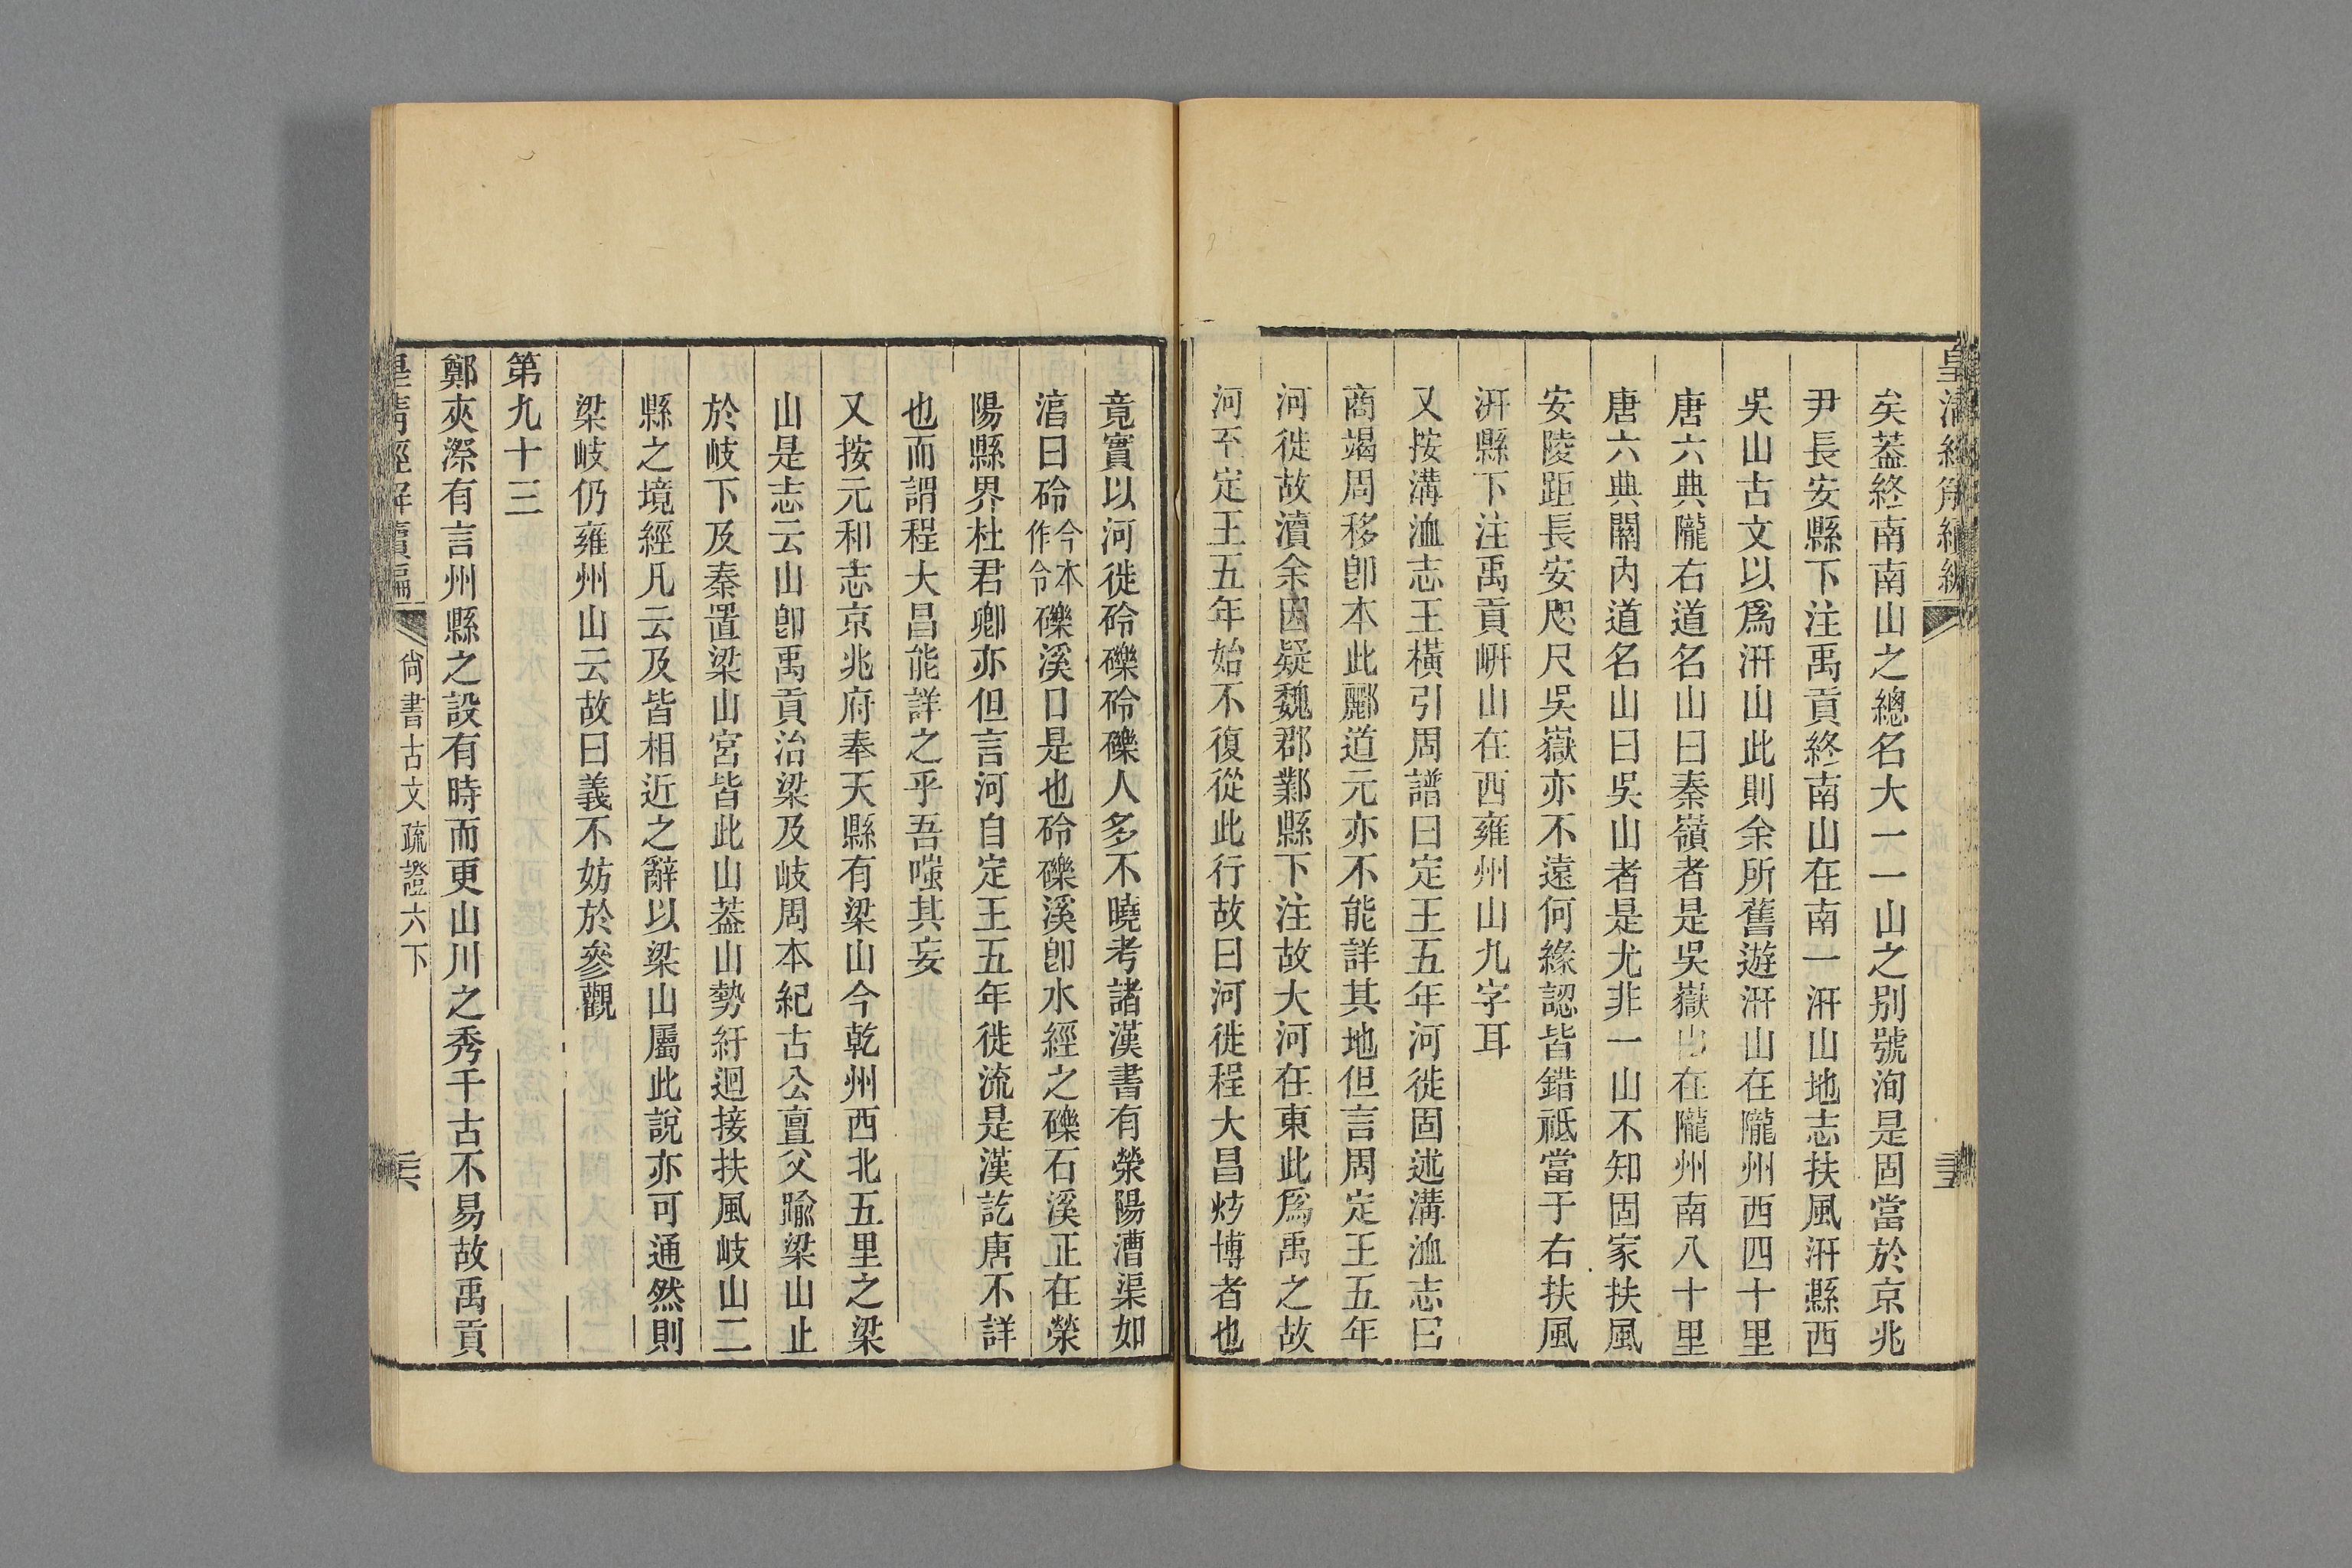 矣葢終南南山之總名大一一山之别號洵是固當於京兆
尹長安縣下注禹貢終南山在南一汧山地志扶風汧縣西
吳山古文以爲汧山此則余所舊遊汧山在隴州西四十里
唐六典隴右道名山曰秦嶺者是吳嶽也在隴州南八十里
唐六典關內道名山曰吳山者是尤非一山不知固家扶風
安陵距長安咫尺吳嶽亦不遠何緣認皆錯祗當于右扶風
汧縣下注禹貢岍山在西雍州山九字耳
又按溝洫志王橫引周譜曰定王五年河徙固述溝洫志曰
商竭周移卽本此酈道元亦不能詳其地但言周定王五年
河徙故瀆余因疑魏郡鄴縣下注故大河在東此爲禹之故
河至定王五年始不復從此行故曰河徙程大昌好博者也
竟實以河徙砱礫砱礫人多不曉考諸漢書有滎陽漕渠如
淳曰砱今本作令礫溪口是也砱礫溪卽水經之礫石溪正在滎
陽縣界杜君卿亦但言河自定王五年徙流是漢訖唐不詳
也而謂程大昌能詳之乎吾嗤其妄
又按元和志京兆府奉天縣有梁山今乾州西北五里之梁
山是志云山卽禹貢治梁及岐周本紀古公亶父踰梁山止
於岐下及秦置梁山宮皆此山葢山勢紆迴接扶風岐山二
縣之境經凡云及皆相近之辭以梁山屬此說亦可通然則
梁岐仍雍州山云故曰義不妨於參觀
第九十三
鄭夾漈有言州縣之設有時而更山川之秀千古不易故禹貢
皇清經解續編
尚書古文疏證六下